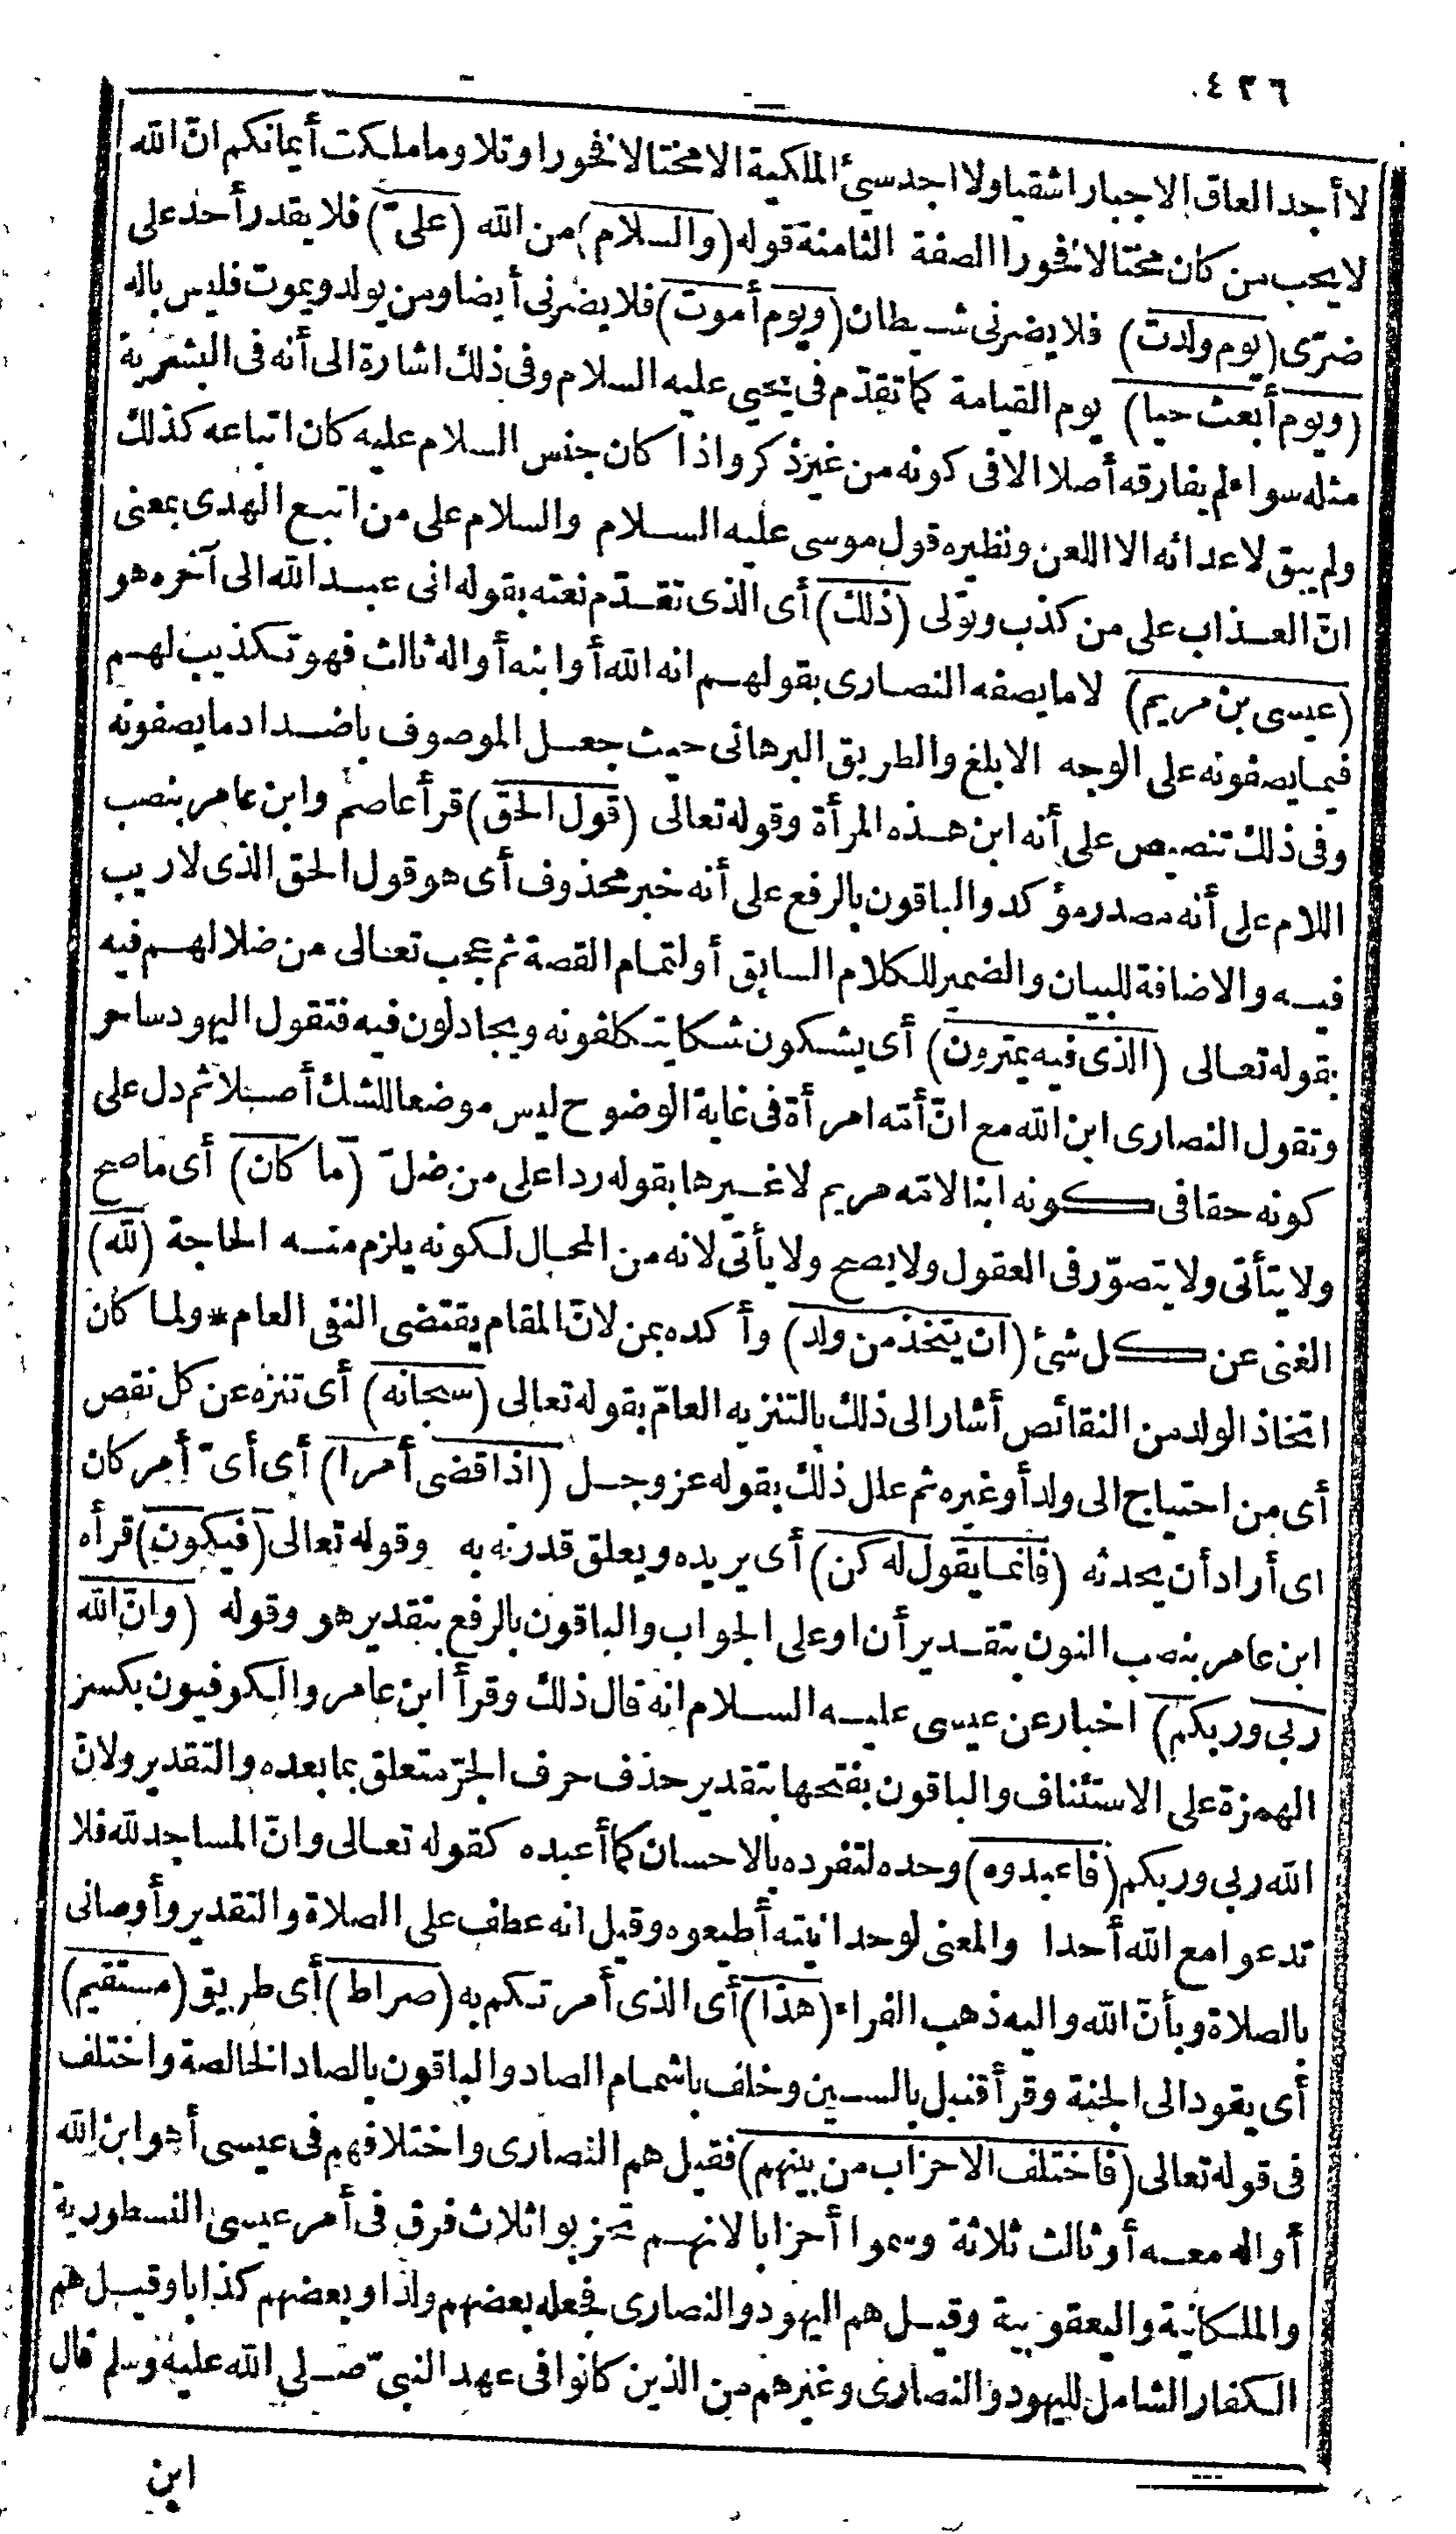 ٤٢٦
لا أجد العاق الاجبارا شقيا ولا اجد سيئ الملكية الا مختالا فخورا وتلا وما ملكت أيمانكم انّ الله
لا يحب من كان مختالا فخورا الصفة الثامنة قوله (والسلام) من الله (علىّ) فلا يقدر أحد على
ضرّى (يوم ولدت) فلا يضرنى شيطان (ويوم أموت) فلا يضرنى أيضا ومن يولد ويموت فليس باله
(ويوم أبعث حيا) يوم القيامة كما تقدّم فى يحيى عليه السلام وفى ذلك اشارة الى أنه فى البشرية
مثله سواء لم يفارقه أصلا الا فى كونه من غير ذكر واذا كان جنس السلام عليه كان اتباعه كذلك
ولم يبق لاعدائه الا اللعن ونظيره قول موسى عليه السلام والسلام على من اتبع الهدى بمعنى
انّ العذاب على من كذب وتولى (ذلك) أى الذى تقدّم نعته بقوله انى عبد الله الى آخره هو
(عيسى بن مريم) لا ما يصفه النصارى بقولهم انه الله أو ابنه أو اله ثالث فهو تكذيب لهم
فيما يصفونه على الوجه الابلغ والطريق البرهانى حيث جعل الموصوف باضداد ما يصفونه
وفى ذلك تنصيص على أنه ابن هذه المرأة وقوله تعالى (قول الحق) قرأ عاصم وابن عامر بنصب
اللام على أنه مصدر مؤكد والباقون بالرفع على أنه خبر محذوف أى هو قول الحق الذى لا ريب
فيه والاضافة للبيان والضمير للكلام السابق أو لتمام القصة ثم عجب تعالى من ضلالهم فيه
بقوله تعالى (الذى فيه يمترون) أى يشكون شكا يتكلفونه ويجادلون فيه فتقول اليهود ساحر
وتقول النصارى ابن الله مع انّ أمّه امرأة فى غاية الوضوح ليس موضعا للشك أصلا ثم دل على
كونه حقا فى كونه ابنا لامّه مريم لا غيرها بقوله ردا على من ضلّ (ما كان) أى ما صح
ولا يتأتى ولا يتصوّر فى العقول ولا يصح ولا يأتى لانه من المحال لكونه يلزم منه الحاجة (لله)
الغنى عن كل شئ (ان يتخذ من ولد) وأكده بمن لانّ المقام يقتضى النفى العام * ولما كان
اتخاذ الولد من النقائص أشار الى ذلك بالتنزيه العامّ بقوله تعالى (سبحانه) أى تنزه عن كل نقص
أى من احتياج الى ولد أو غيره ثم علل ذلك بقوله عز وجل (اذا قضى أمرا) أى أىّ أمر كان
اى أراد أن يحدثه (فانما يقول له كن) أى يريده ويعلق قدرته به وقوله تعالى (فيكون) قرأه
ابن عامر بنصب النون بتقدير أن او على الجواب والباقون بالرفع بتقدير هو وقوله (وانّ الله
ربى وربكم) اخبار عن عيسى عليه السلام انه قال ذلك وقرأ ابن عامر والكوفيون بكسر
الهمزة على الاستئناف والباقون بفتحها بتقدير حذف حرف الجرّ متعلق بما بعده والتقدير ولانّ
الله ربى وربكم (فاعبدوه) وحده لتفرده بالاحسان كما أعبده كقوله تعالى وانّ المساجد لله فلا
تدعوا مع الله أحدا والمعنى لوحدانيته أطيعوه وقيل انه عطف على الصلاة والتقدير وأوصانى
بالصلاة وبأنّ الله واليه ذهب الفراء (هذا) أى الذى أمرتكم به (صراط) أى طريق (مستقيم)
أى يقود الى الجنة وقرأ قنبل بالسين وخلف باشمام الصاد والباقون بالصاد الخالصة واختلف
فى قوله تعالى (فاختلف الاحزاب من بينهم) فقيل هم النصارى واختلافهم فى عيسى أهو ابن الله
أو اله معه أو ثالث ثلاثة وسموا أحزابا لانهم تحزبوا ثلاث فرق فى أمر عيسى النسطورية
والملكانية واليعقوبية وقيل هم اليهود والنصارى فجعله بعضهم ولدا وبعضهم كذابا وقيل هم
الكفار الشامل لليهود والنصارى وغيرهم من الذين كانوا فى عهد النبىّ صلى الله عليه وسلم قال
ابن